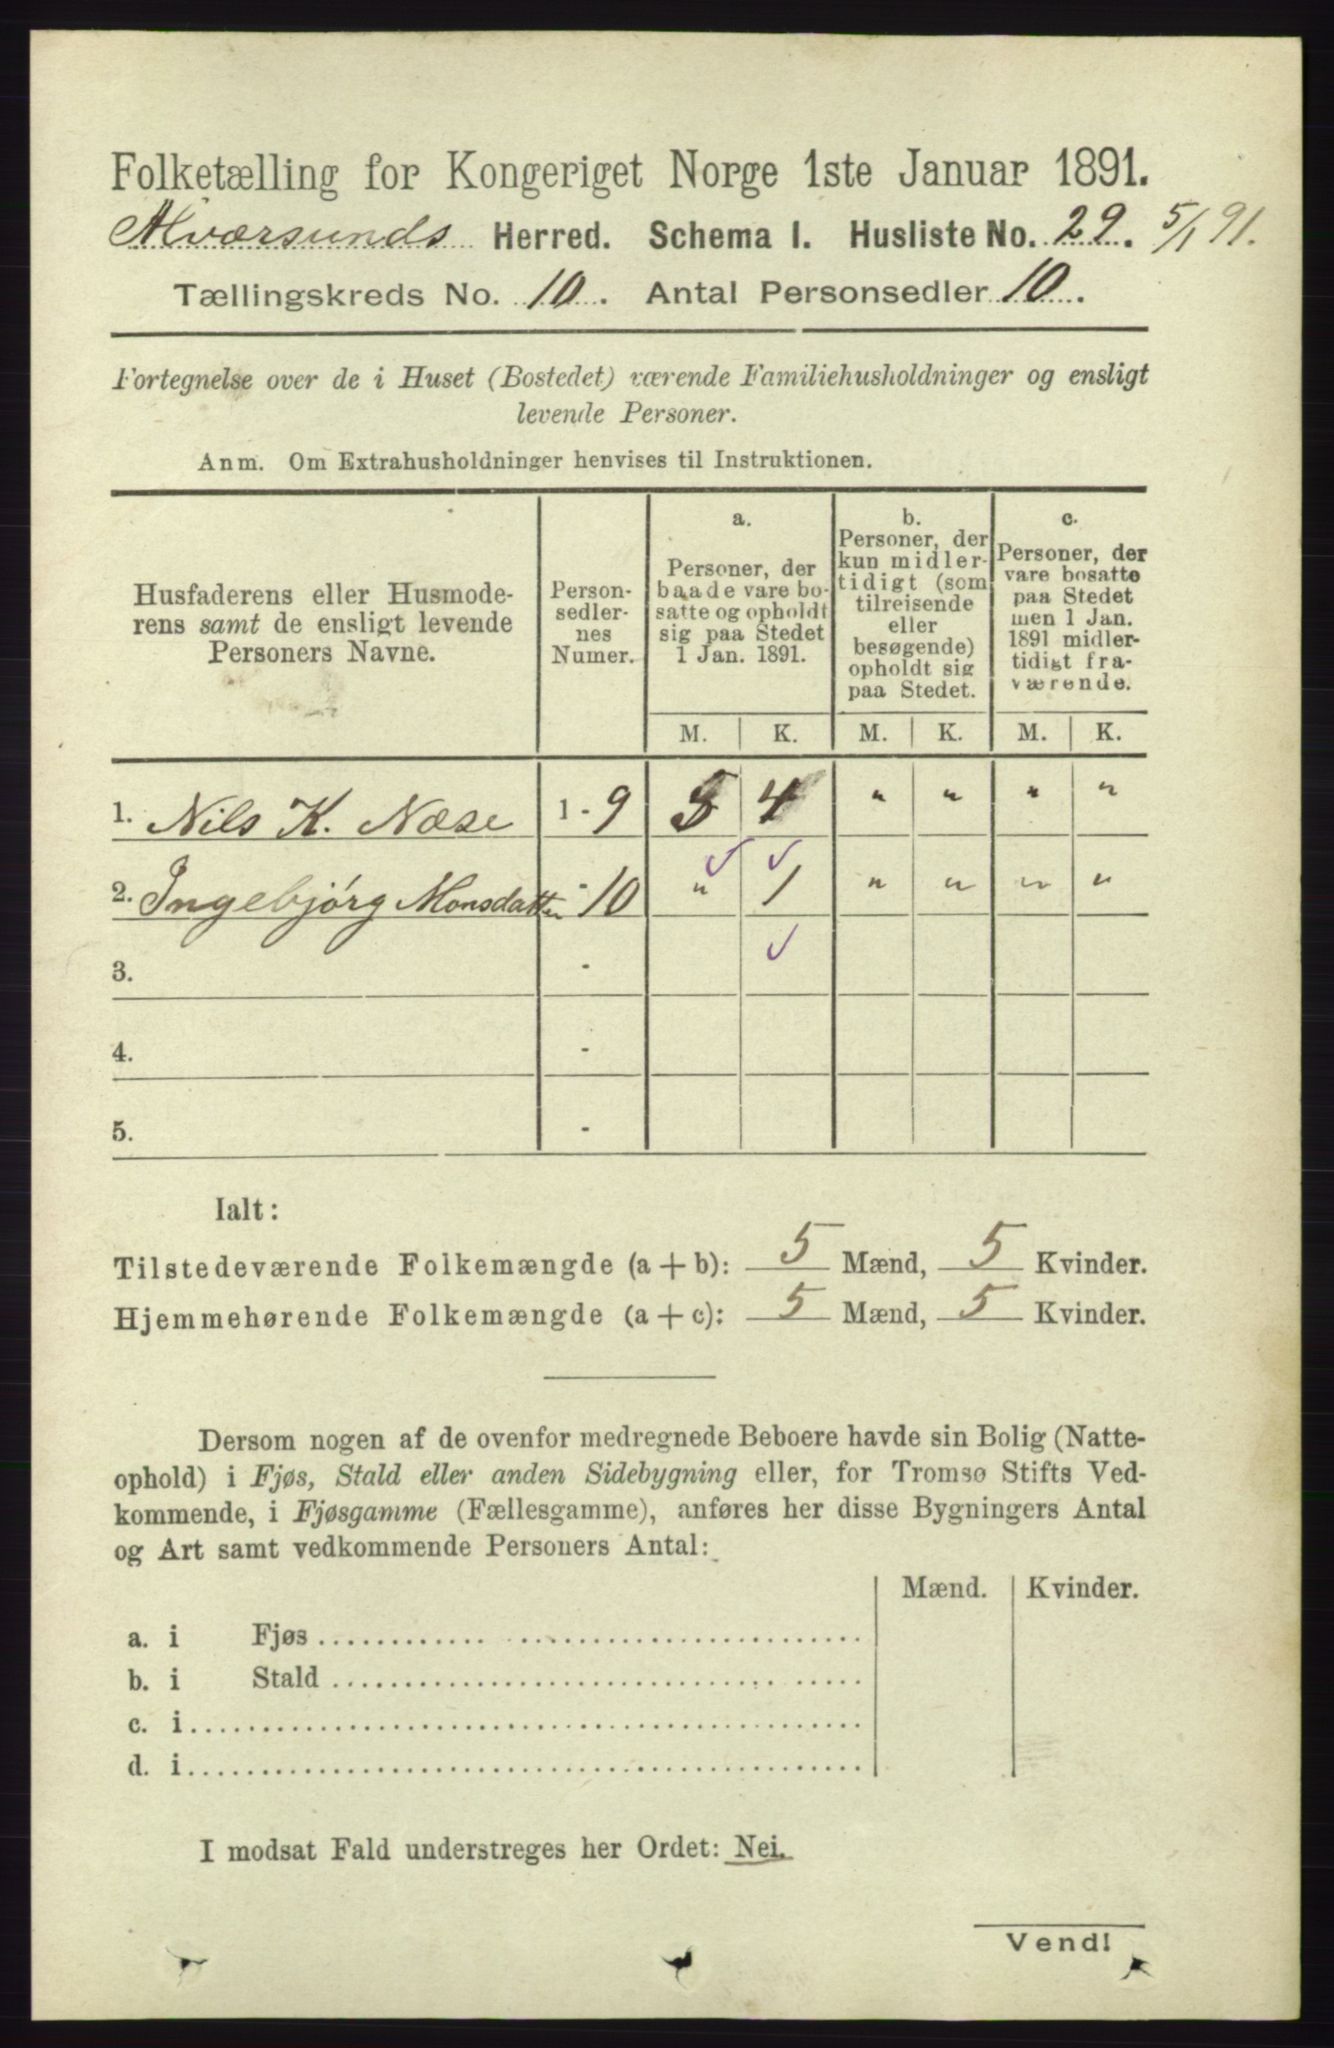 Folketælling for Kongeriget Norge 1ste Januar 1891.
Alværsunds Herred. Schema I. Husliste No. 29. 5/1 91.
Tællingskreds No. 10. Antal Personsedler 10.
Fortegnelse over de i Huset (Bostedet) værende Familiehusholdninger og ensligt
levende Personer.
Anm. Om Extrahusholdninger henvises til Instruktionen.
Husfaderens eller Husmode-
rens samt de ensligt levende
Personers Navne.
Person-
sedler-
nes
Numer.
a.
Personer, der
baade vare bo-
satte og opholdt
sig paa Stedet
1 Jan. 1891.
b.
Personer, der
kun midler-
tidigt (som
tilreisende
eller
besøgende)
opholdt sig
paa Stedet.
c.
Personer, der
vare bosatte
paa Stedet
men 1 Jan.
1891 midler-
tidigt fra-
værende.
M. K. M. K. M. K.
1. Nils K. Næse 1-9 5 4 " " " "
2. Ingebjørg Monsdatter -10 " 1 " " " "
3. -
4. -
5. -
Ialt:
Tilstedeværende Folkemængde (a+b): 5 Mænd, 5 Kvinder.
Hjemmehørende Folkemængde (a+c): 5 Mænd, 5 Kvinder.
Dersom nogen af de ovenfor medregnede Beboere havde sin Bolig (Natte-
ophold) i Fjøs, Stald eller anden Sidebygning eller, for Tromsø Stifts Ved-
kommende, i Fjøsgamme (Fællesgamme), anføres her disse Bygningers Antal
og Art samt vedkommende Personers Antal:
Mænd. Kvinder.
a. i Fjøs
b. i Stald
c. i
d. i
I modsat Fald understreges her Ordet: Nei.
Vend!